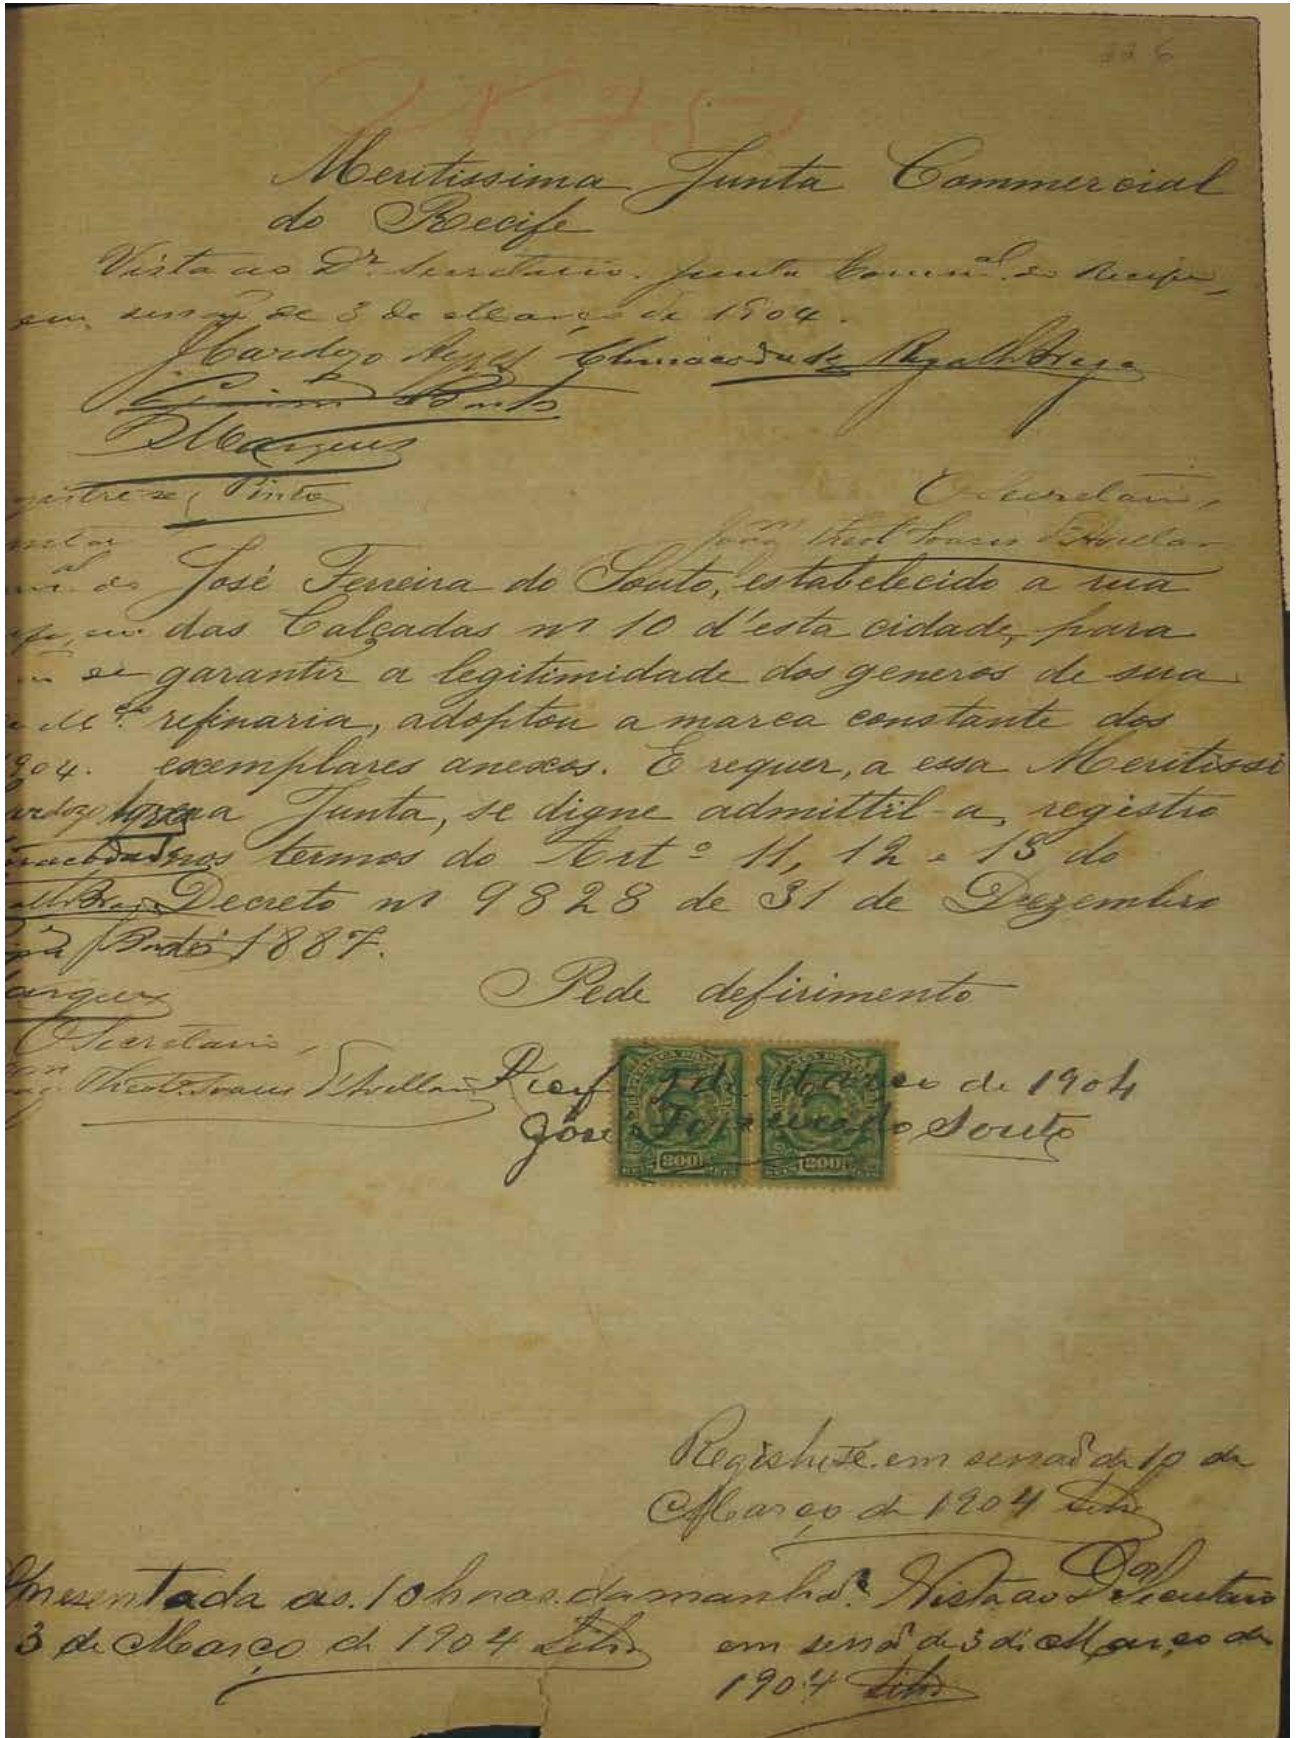 226
Nº 75
Meritissima Junta Commercial
do Recife
Vista ao Dr. Secretario. Junta Comm.al do Recife,
em sessão de 3 de Março de 1904.
JCardozo Ayres
Pinto
BMarques
gistre-se, Pinto
O Secretario,
Joaqm Theot. Soares d'Avellar
José Ferreira do Souto, estabelecido a rua
das Calçadas nº 10 d'esta cidade, para
garantir a legitimidade dos generos de sua
refinaria, adoptou a marca constante dos
904. exemplares anexos. E requer, a essa Meritissi
ma Junta, se digne admittil-a, registro
nos termos do Artº 11, 12 e 13 do
Decreto nº 9828 de 31 de Dezembro
de 1887.
arques
Pede defirimento
O Secretario,
Theot. Soares d'Avellar
Recife de Março de 1904
José Ferreira do Souto
200 200
Registre-se em sessão de 10 de
Março de 1904
Apresentada as 10 horas da manhã.
3 de Março de 1904
Vista ao Dor Secretario
em sessão de 3 de Março de
1904